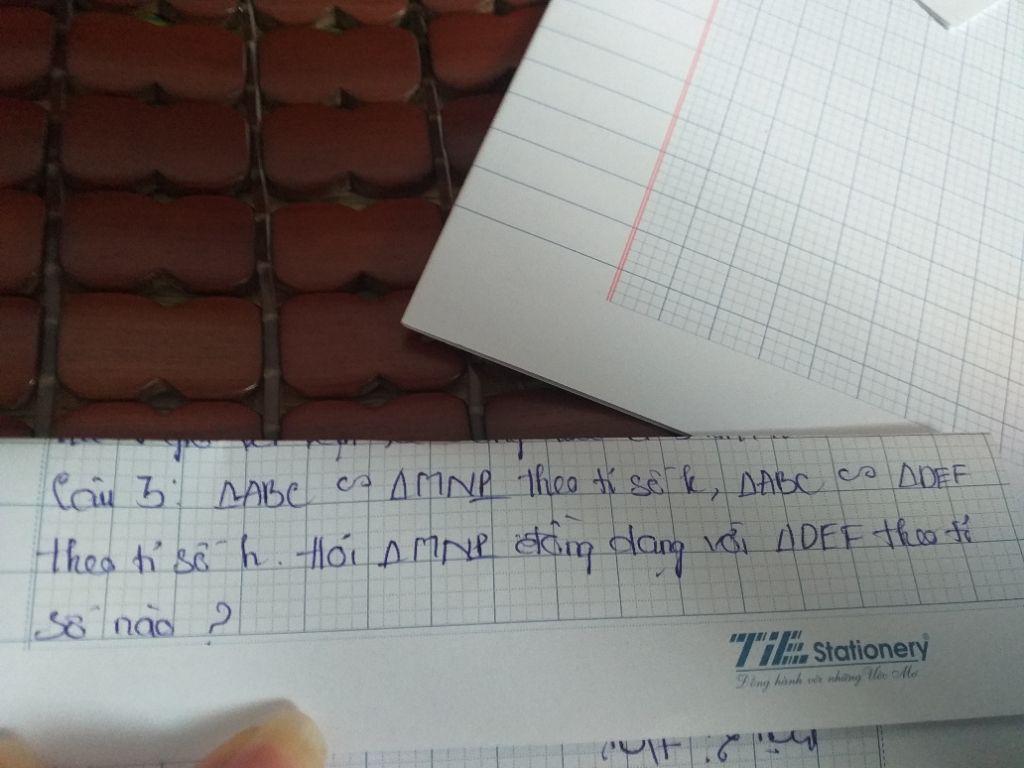 Câu 3: ΔABC ∽ ΔMNP theo tỉ số k, ΔABC ∽ ΔDEF
theo tỉ số h. Hỏi ΔMNP đồng dạng với ΔDEF theo tỉ
số nào ?
TiE Stationery
Đồng hành với những Ước Mơ